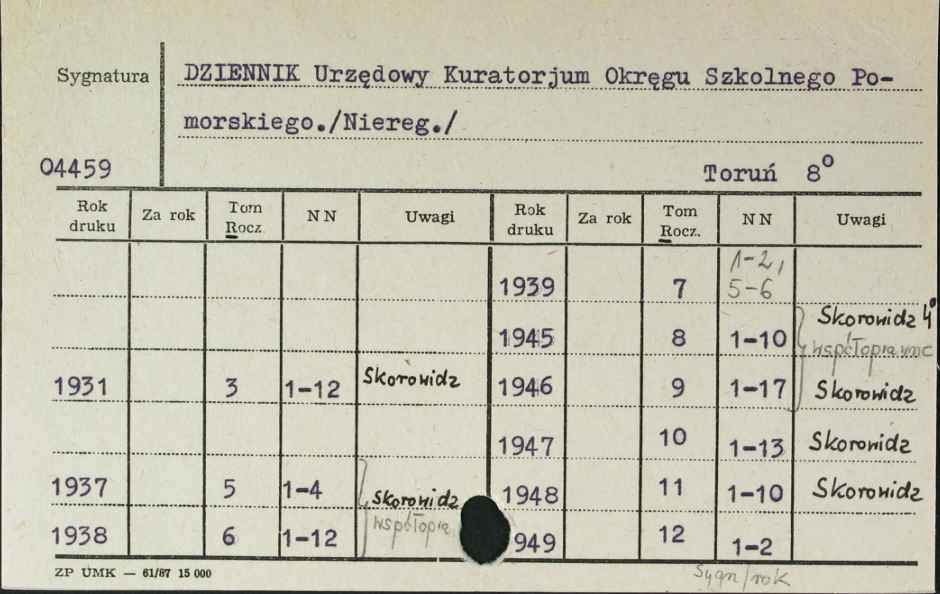 Sygnatura DZIENNIK Urzędowy Kuratorjum Okręgu Szkolnego Po-
morskiego./Niereg./
04459 Toruń 8º
Rok druku Za rok Tom Rocz. N N Uwagi Rok druku Za rok Tom Rocz. N N Uwagi
1939 7 1-2, 5-6
1945 8 1-10 Skorowidz 4º
1931 3 1-12 Skorowidz 1946 9 1-17 Skorowidz
1947 10 1-13 Skorowidz
1937 5 1-4 Skorowidz 1948 11 1-10 Skorowidz
1938 6 1-12 949 12 1-2
ZP UMK — 61/87 15 000 Sygn/rok